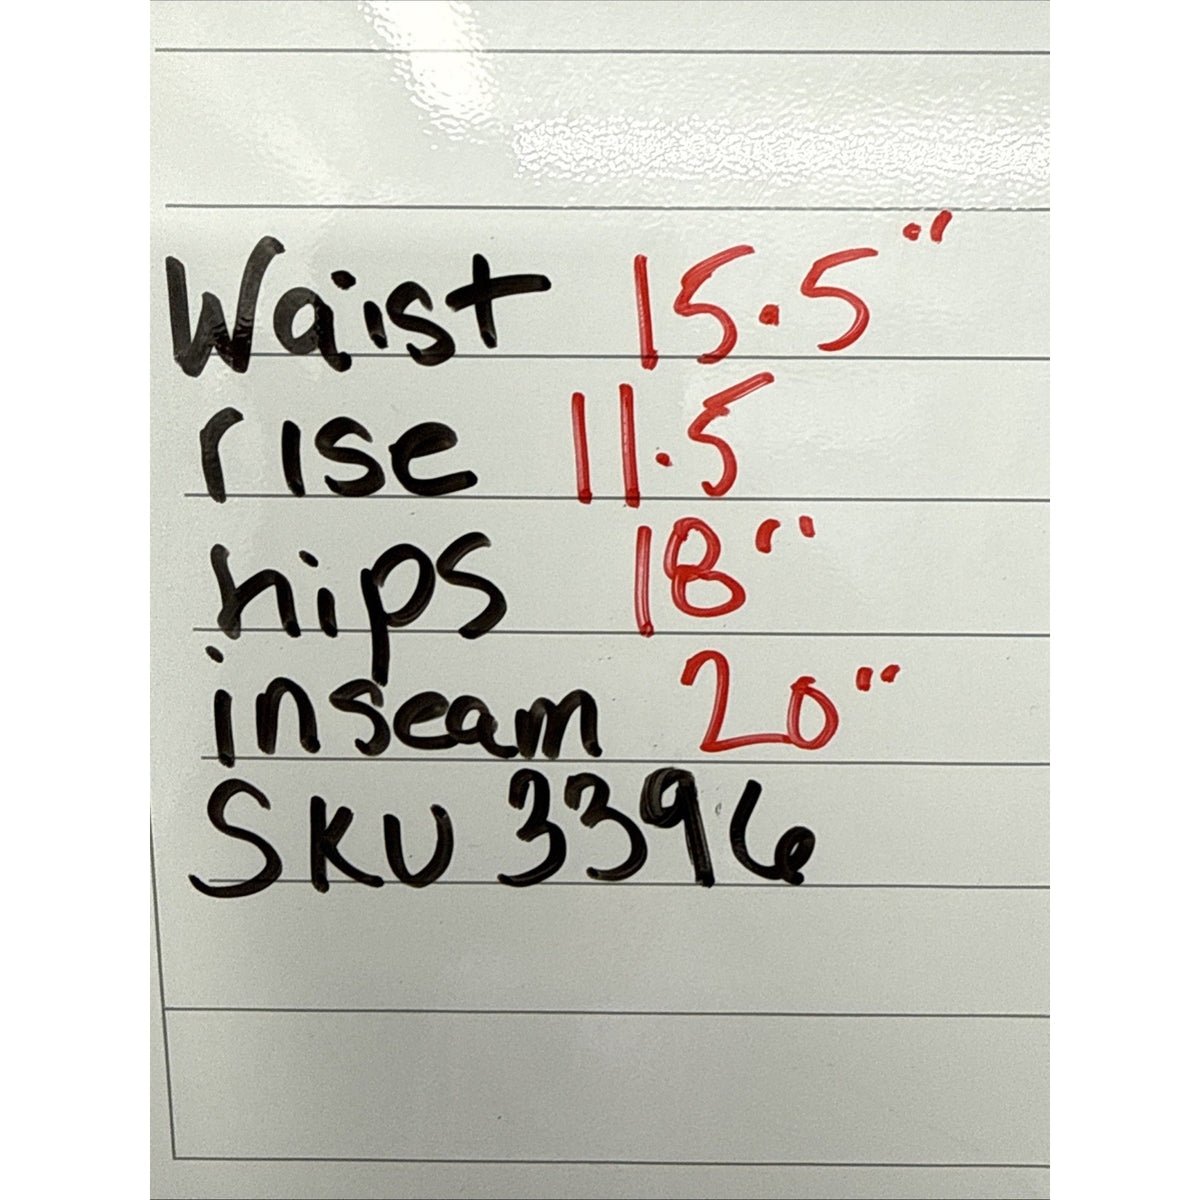 Waist 15.5"
rise 11.5
hips 18"
inseam 20"
SKU 3396